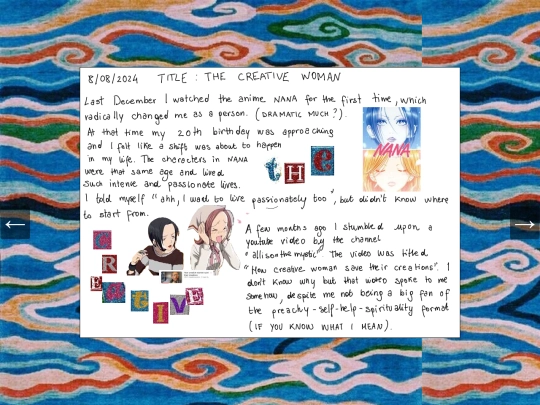 8/08/2024 TITLE : THE CREATIVE WOMAN
Last December I watched the anime NANA for the first time, which
radically changed me as a person. (DRAMATIC MUCH?).
At that time my 20th birthday was approaching
and I felt like a shift was about to happen
in my life. The characters in NANA
were that same age and lived
such intense and passionate lives.
I told myself "ahh, I want to live passionately too", but didn't know where
to start from.
NANA
tHe
A few months ago I stumbled upon a
youtube video by the channel
"allisonthemystic". The video was titled
"How creative woman save their creations". I
don't know why but that video spoke to me
somehow, despite me not being a big fan of
the preachy-self-help-spirituality format
(IF YOU KNOW WHAT I MEAN).
CREATIVE